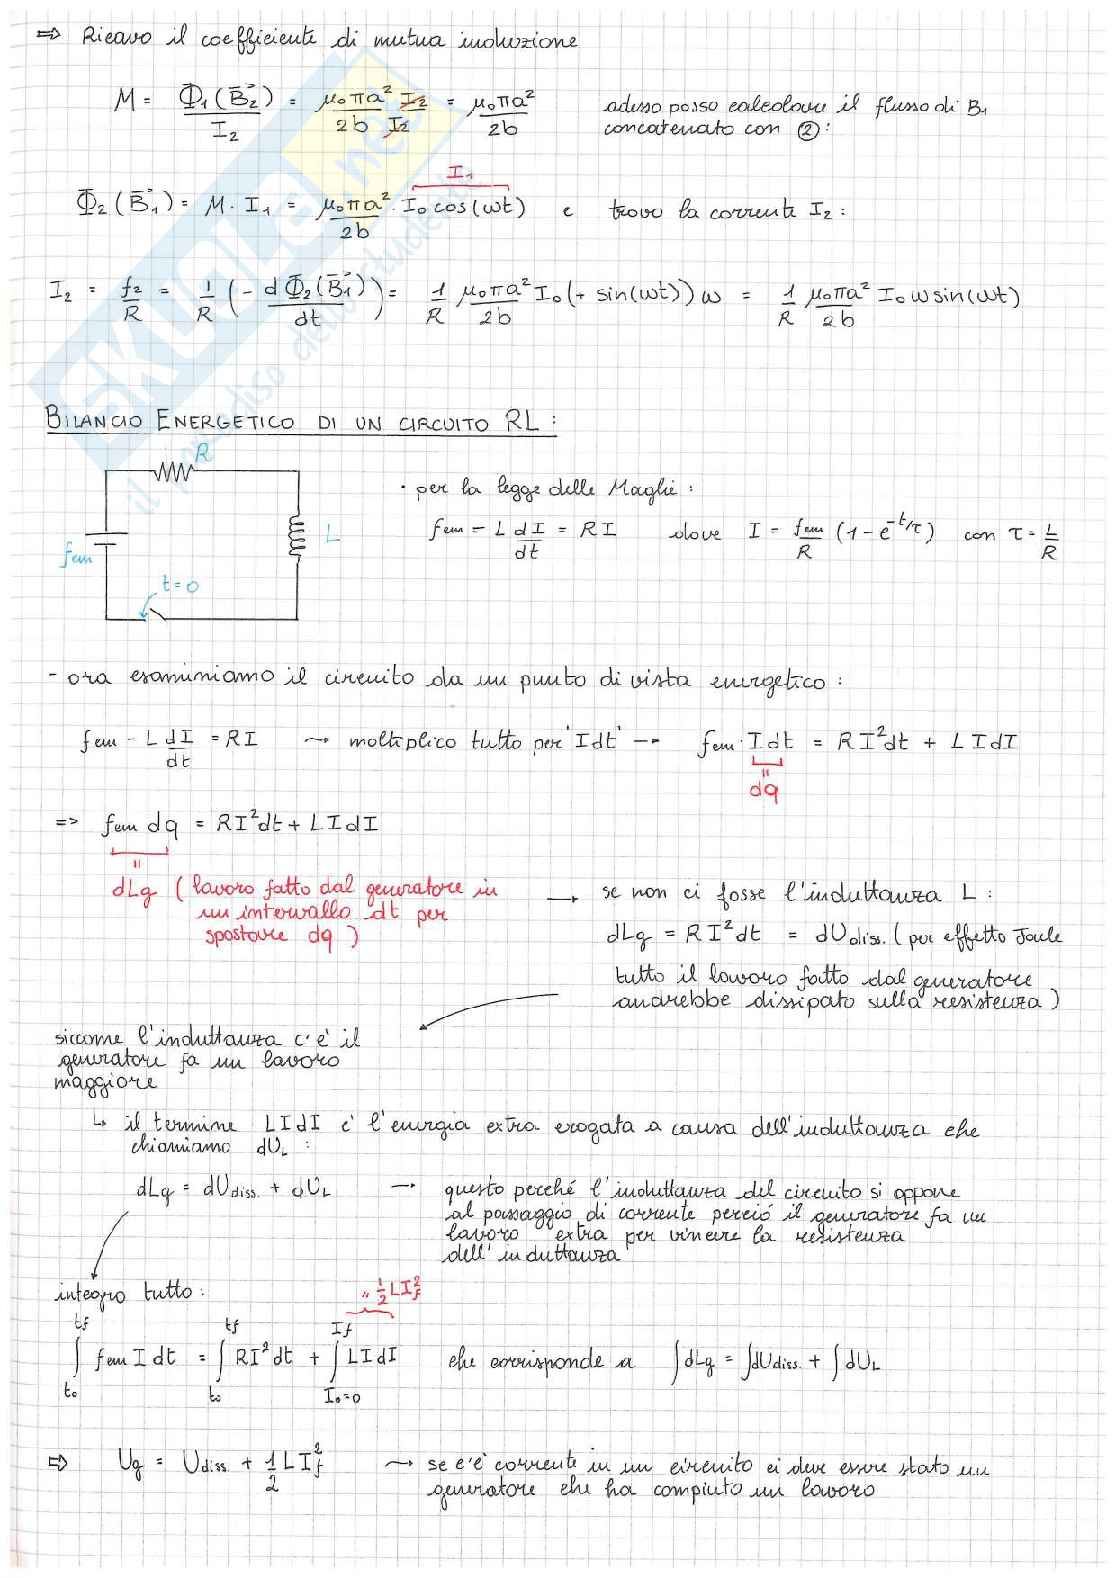 ⇒ Ricavo il coefficiente di mutua induzione
M = Φ₁(B⃗₂)/I₂ = μ₀πa² I₂/2b I₂ = μ₀πa²/2b adesso posso calcolare il flusso di B₁
concatenato con ②:
I₁
Φ₂(B⃗₁) = M · I₁ = μ₀πa²/2b · I₀ cos(ωt) e trovo la corrente I₂:
I₂ = f₂/R = 1/R (- dΦ₂(B⃗₁)/dt) = 1/R μ₀πa²/2b I₀ (+ sin(ωt)) ω = 1/R μ₀πa²/2b I₀ ω sin(ωt)
BILANCIO ENERGETICO DI UN CIRCUITO RL:
R
· per la legge delle Maglie:
fem - L dI/dt = RI dove I = fem/R (1 - e^-t/τ) con τ = L/R
L
fem
t=0
- ora esaminiamo il circuito da un punto di vista energetico:
fem - L dI/dt = RI → moltiplico tutto per 'Idt' → fem · Idt = RI²dt + LIdI
=
dq
=> fem dq = RI²dt + LIdI
=
dLg (lavoro fatto dal generatore in
un intervallo dt per
spostare dq)
→ se non ci fosse l'induttanza L:
dLg = RI²dt = dUdiss. (per effetto Joule
tutto il lavoro fatto dal generatore
andrebbe dissipato sulla resistenza)
siccome l'induttanza c'è il
generatore fa un lavoro
maggiore
↳ il termine LIdI è l'energia extra erogata a causa dell'induttanza che
chiamiamo dU_L:
dLg = dUdiss. + dU_L → questo perché l'induttanza del circuito si oppone
al passaggio di corrente perciò il generatore fa un
lavoro "extra" per vincere la resistenza
dell'induttanza
integro tutto:
= ½LI_f²
∫_t₀^tf fem I dt = ∫_t₀^tf RI²dt + ∫_I₀=0^If LIdI che corrisponde a ∫dLg = ∫dUdiss. + ∫dU_L
⇒ Ug = Udiss + 1/2 LI_f² → se c'è corrente in un circuito ci deve essere stato un
generatore che ha compiuto un lavoro